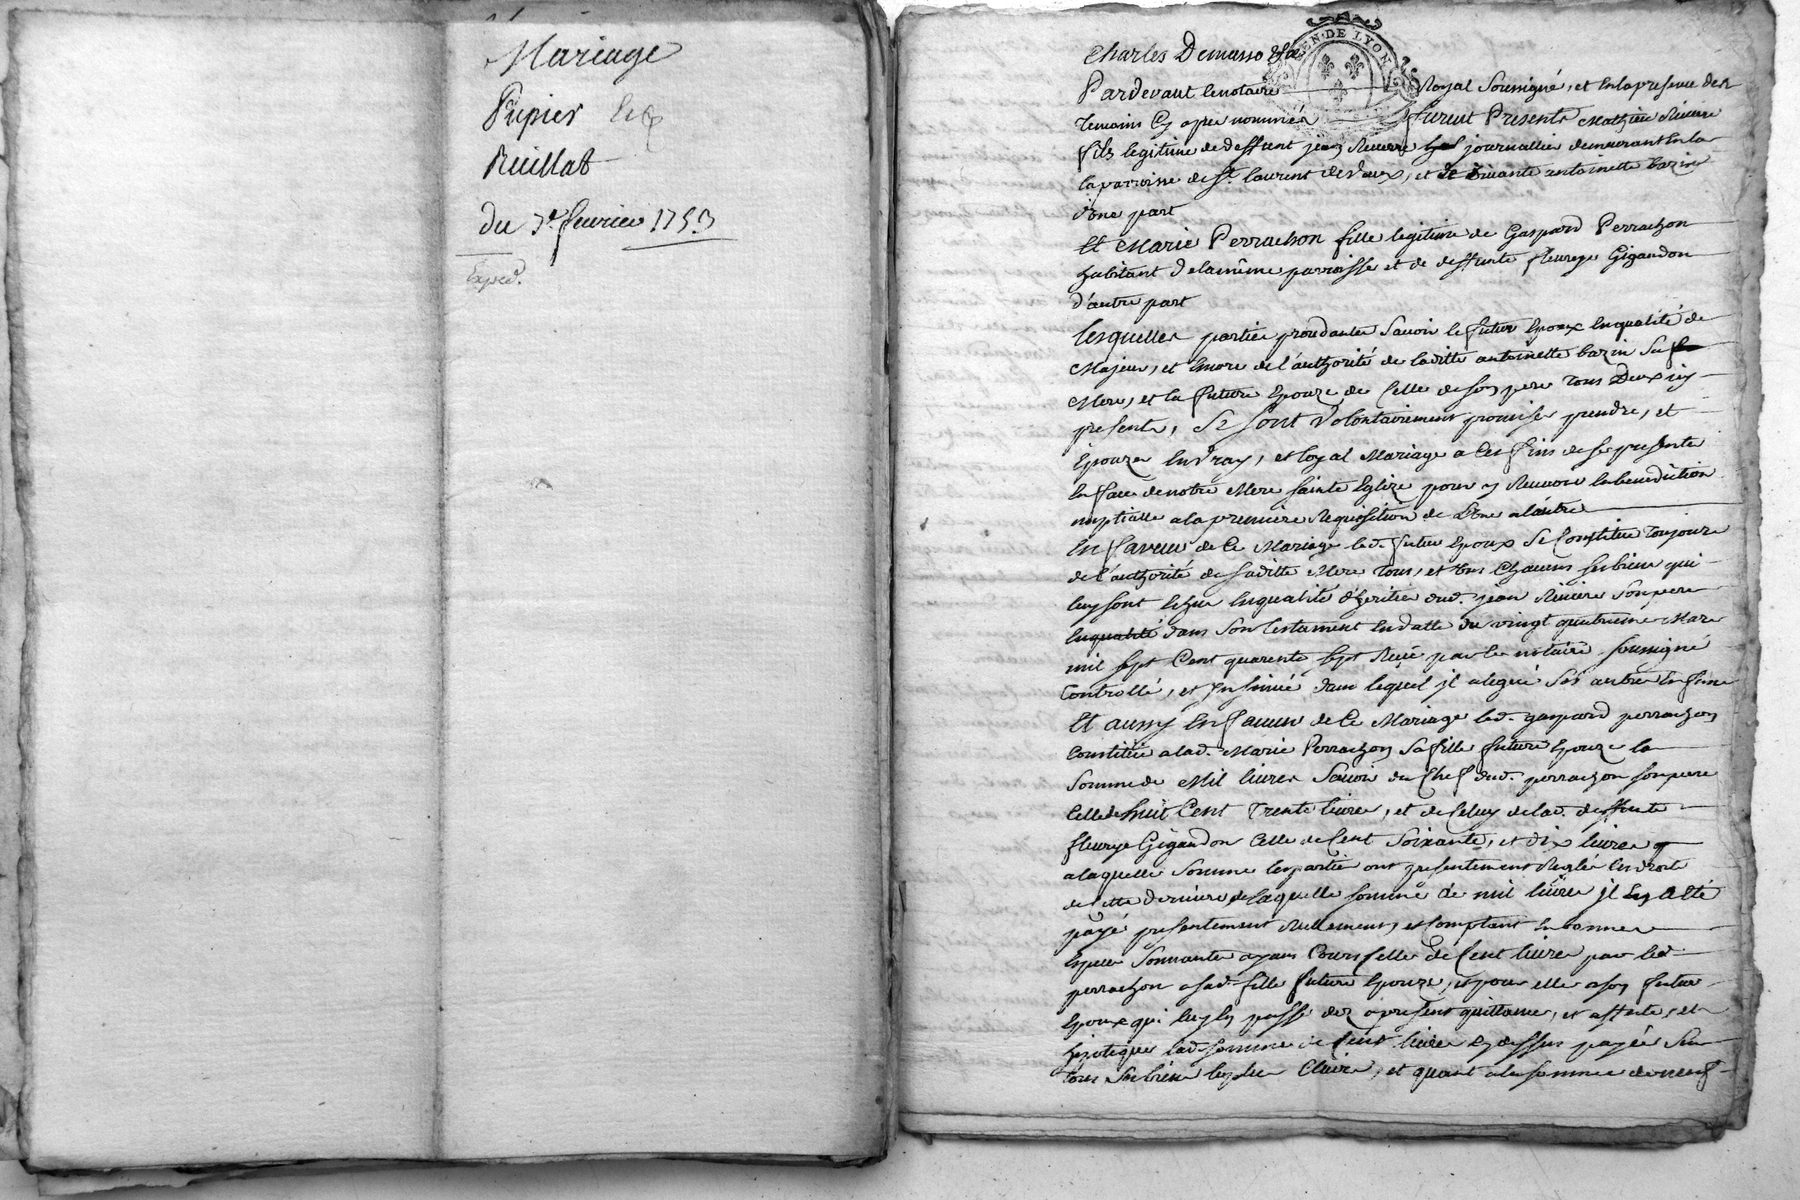 Mariage
Pupier
Ruillat
du 3e fevrier 1753
Exped.
GEN. DE LYON
Charles Demasso
Pardevant le notaire Royal Soussigné, et en la presence des
temoins cy apres nommés furent Presents Mathieu Riviere
fils legitime de deffunt jean Riviere journallier demeurant en la
la parroisse de St. laurent de vaux, et de vivante antoinette bazin
d'une part
Et Marie Perrachon fille legitime de Gaspard Perrachon
habitant de la même parroisse et de deffunte fleurye Gigandon
d'autre part
lesquelles parties procedantes Savoir le futur Epoux en qualité de
Majeur, et encore de l'authorité de laditte antoinette bazin Sa
Mere, et la future Epouze de Celle de son pere tous Deux icy
presents, Se Sont Volontairement promis se prendre, et
Epouzer en vray, et loyal Mariage a Ces fins de se presenter
En face de notre Mere Sainte Eglize pour y Recevoir la benediction
nuptialle a la premiere Requisition de L'une a l'autre
En faveur de Ce Mariage led. futur Epoux Se Constitue toujours
de l'authorité de saditte Mere tous, et uns Chacuns ses biens qui
luy sont Echus en qualité d'heritier dud. jean Riviere Son pere
en qualité dans Son testament en datte du vingt quatrieme Mars
mil Sept Cent quarente Sept Reçu par le notaire soussigné
Controllé, et Insinué dans lequel il a legué Ses autres Enfans
Et aussy En faveur de Ce Mariage led. gaspard perrachon
Constitue a lad. Marie Perrachon Sa fille future Epouze la
Somme de Mil livres Savoir du Chef dud. perrachon son pere
Celle de huit Cent Trente livres, et de Celuy de lad. deffunte
fleurye Gigandon Celle de Cent Soixante, et dix livres
a laquelle Somme les parties ont presentement Reglé les droits
de cette derniere de laquelle somme de mil livres il En a Eté
payé presentement Reellement, et Comptant en bonnes
Especes Sonnantes ayans Cours Celle de Cent livres par led.
perrachon a sad. fille future Epouze, et pour elle a son futur
Epoux qui luy en passe dez a present quittance, et affecte, et
hypoteque lad. somme de Cent livres Cy dessus payée Sur
tous Ses biens les plus Clairs, et quant a la somme de neuf